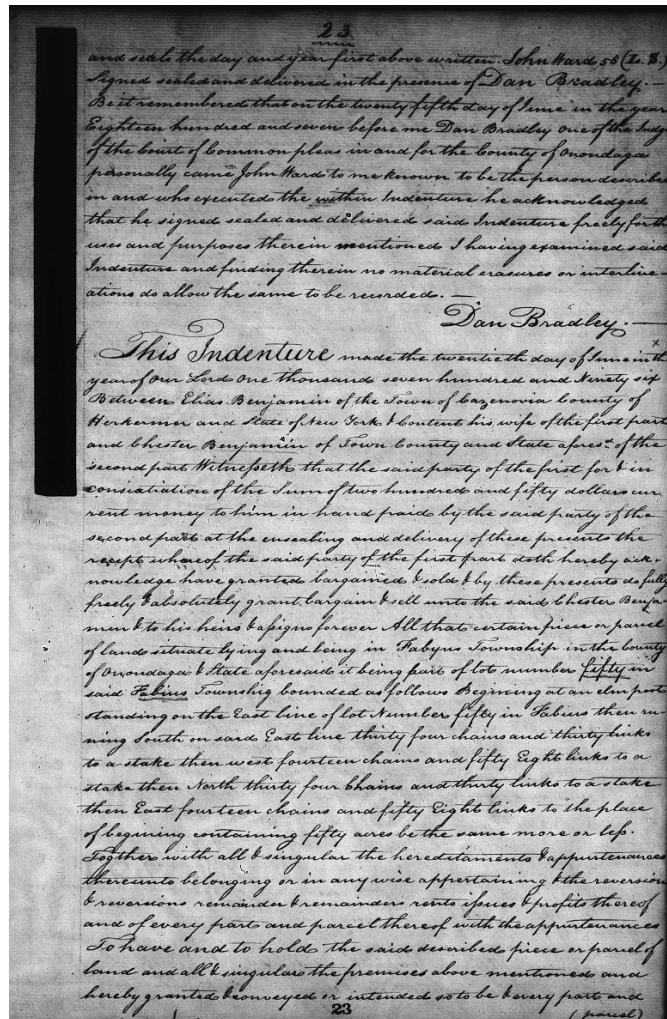 23
and seals the day and year first above written. John Ward 56 (L. S.)
Signed sealed and delivered in the presence of Dan Bradley. —
Be it remembered that on the twenty fifth day of June in the year
Eighteen hundred and seven before me Dan Bradley one of the Judg
of the Court of Common pleas in and for the County of Onondaga
personally came John Ward to me known to be the person describe
in and who executed the within Indenture he acknowledged
that he signed sealed and delivered said Indenture freely for th
uses and purposes therein mentioned I having examined said
Indenture and finding therein no material erasures or interline-
ations do allow the same to be recorded. —
Dan Bradley. —
This Indenture made the twentieth day of June in th
year of Our Lord One thousand seven hundred and Ninety six
Between Elias Benjamin of the Town of Cazenovia County of
Herkermer and State of New York & Content his wife of the first part
and Chester Benjamin of Town County and State afores.d of the
second part Witnesseth that the said party of the first for & in
consiatiation of the Sum of two hundred and fifty dollars cur
rent money to him in hand paid by the said party of the
second part at the ensealing and delivery of these presents the
recept whereof the said party of the first part doth hereby ack-
nowledge have granted bargained & sold & by these presents do fully
freely & absolutely grant bargain & sell unto the said Chester Benja-
min & to his heirs & assigns forever All that certain piece or parcel
of land situate lying and being in Fabyus Township in the County
of Onondaga & State aforesaid it being part of lot number fifty in
said Fabius Township bounded as follows Begining at an elm post
standing on the East line of lot Number fifty in Fabius then ru-
ning South on said East line thirty four chains and thirty links
to a stake then west fourteen chains and fifty Eight links to a
stake then North thirty four Chains and thirty links to a stake
then East fourteen chains and fifty Eight links to the place
of begining containing fifty acres be the same more or less.
Togther with all & singular the hereditaments & appurtenances
thereunto belonging or in any wise appertaining & the reversion
& reversions remainder & remainders rents issues & profits thereof
and of every part and parcel thereof with the appurtenances
To have and to hold the said described piece or parcel of
land and all & singular the premises above mentioned and
hereby granted & conveyed or intended so to be & every part and
23
(parcel)